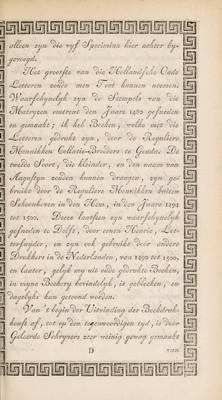 alleen zyn die vyf Specimina hier achter by-
gevoegd.
Het grootste van die Hollandsche Oude
Letteren zoude men Text kunnen noemen.
Waarschynelyk zyn de Stempels van die
Matryzen omtrent den Jaare 1482 gesneden
en gemaakt; ik heb Boeken, welke met die
Letteren gedrukt zyn, door de Reguliere
Monnikken Collatie-Broeders te Gouda. De
zelfde Soort, die kleinder, en den naam van
Augustyn zouden kunnen draagen, zyn ge-
bruikt door de Reguliere Monnikken buiten
Schoonhoven in den Hem, in den Jaare 1494
tot 1500. Deeze laatsten zyn waarschynelyk
gesneden te Delft, door eenen Henric, Let-
tersnyder, en zyn ook gebruikt door andere
Drukkers in de Nederlanden, van 1490 tot 1500,
en laater, gelyk my uit oude gedrukte Boeken,
in myne Boekery bevindelyk, is gebleeken, en
dagelyks kan getoond worden.
Van 't begin der Uitvinding der Boekdruk-
konst af, tot op den tegenwoordigen tyd, is door
Geleerde Schryvers zeer weinig gewag gemaakt
D